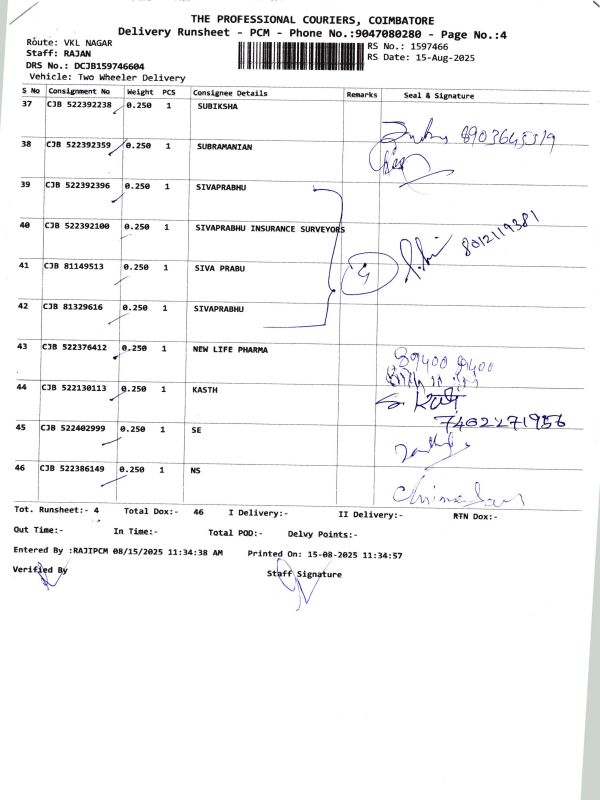 THE PROFESSIONAL COURIERS, COIMBATORE
Delivery Runsheet - PCM - Phone No.:9047080280 - Page No.:4
Route: VKL NAGAR
RS No.: 1597466
Staff: RAJAN
RS Date: 15-Aug-2025
DRS No.: DCJB159746604
Vehicle: Two Wheeler Delivery
S No Consignment No Weight PCS Consignee Details Remarks Seal & Signature
37 CJB 522392238 0.250 1 SUBIKSHA
38 CJB 522392359 0.250 1 SUBRAMANIAN
39 CJB 522392396 0.250 1 SIVAPRABHU
40 CJB 522392100 0.250 1 SIVAPRABHU INSURANCE SURVEYORS 8012119381
41 CJB 81149513 0.250 1 SIVA PRABU
42 CJB 81329616 0.250 1 SIVAPRABHU
43 CJB 522376412 0.250 1 NEW LIFE PHARMA
44 CJB 522130113 0.250 1 KASTH
7402271956
45 CJB 522402999 0.250 1 SE
46 CJB 522386149 0.250 1 NS
Tot. Runsheet:- 4 Total Dox:- 46 I Delivery:- II Delivery:- RTN Dox:-
Out Time:- In Time:- Total POD:- Delvy Points:-
Entered By :RAJIPCM 08/15/2025 11:34:38 AM Printed On: 15-08-2025 11:34:57
Verified By Staff Signature